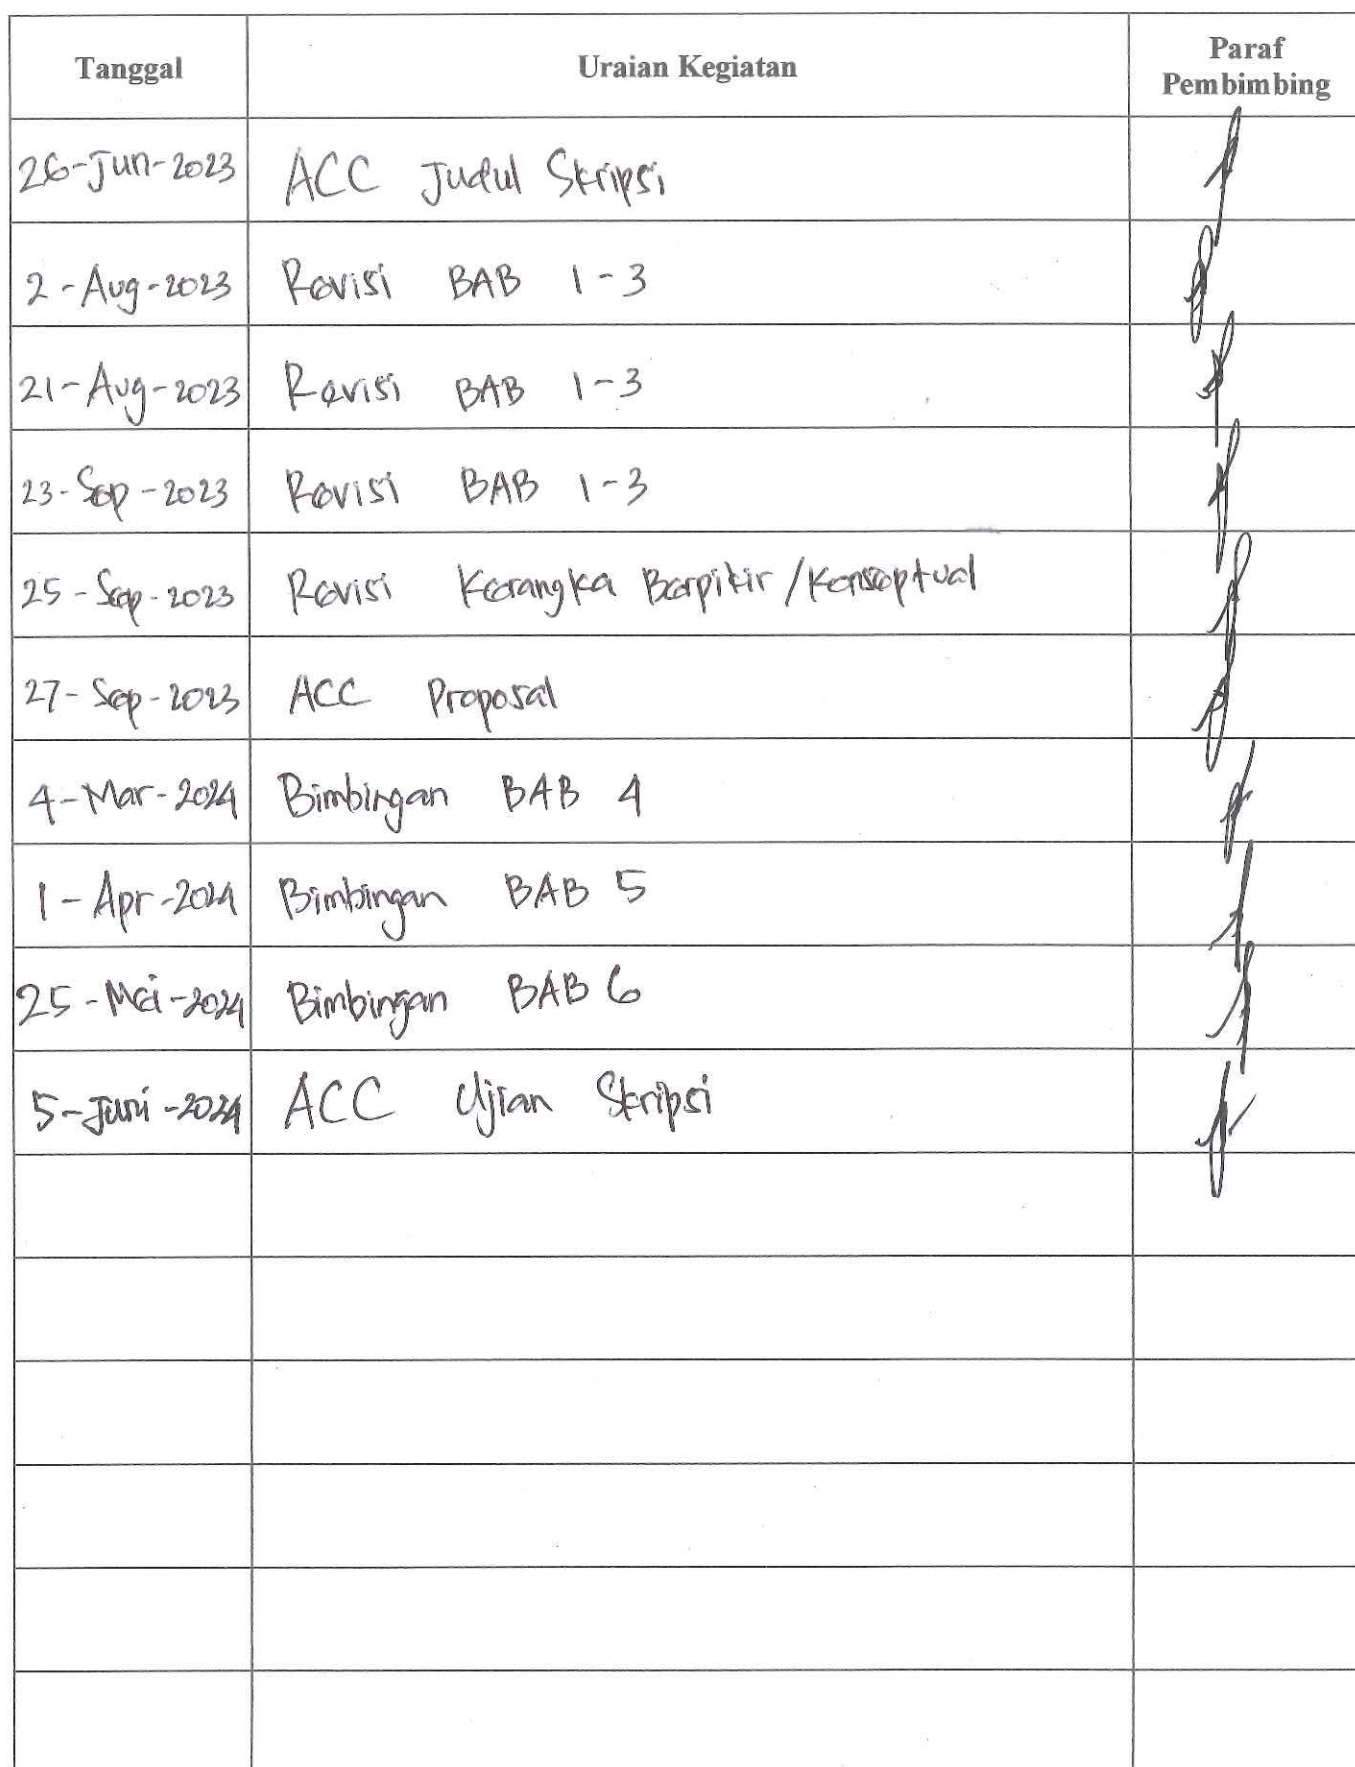 Tanggal Uraian Kegiatan Paraf Pembimbing
26-Jun-2023 ACC Judul Skripsi
2-Aug-2023 Revisi BAB 1-3
21-Aug-2023 Revisi BAB 1-3
23-Sep-2023 Revisi BAB 1-3
25-Sep-2023 Revisi Kerangka Berpikir/Konseptual
27-Sep-2023 ACC Proposal
4-Mar-2024 Bimbingan BAB 4
1-Apr-2024 Bimbingan BAB 5
25-Mei-2024 Bimbingan BAB 6
5-Juni-2024 ACC Ujian Skripsi